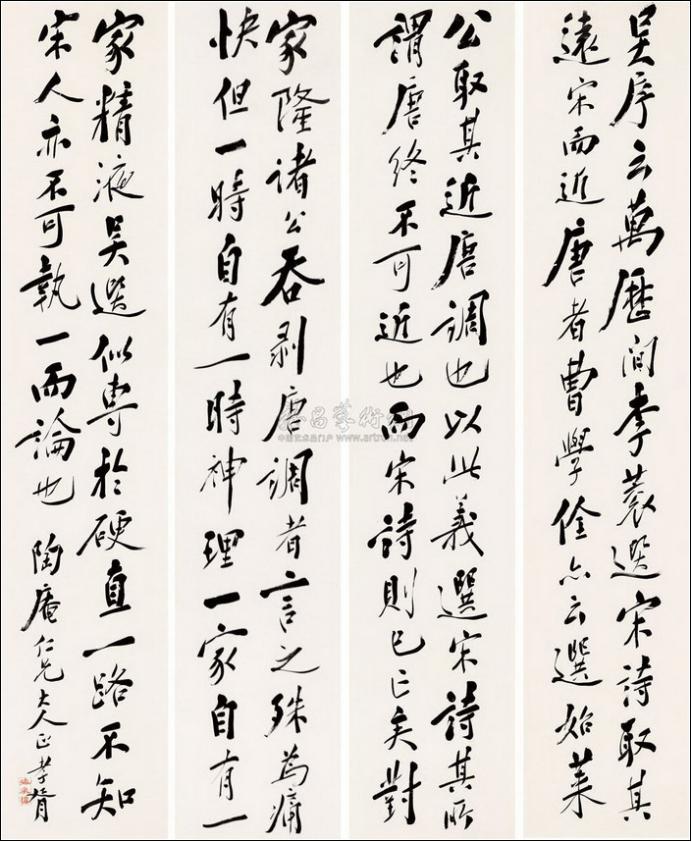 吳序云萬曆間李蓘選宋詩取其
遠宋而近唐者曹學佺亦云選始萊
公取其近唐調也以此義選宋詩其所
謂唐終不可近也而宋詩則已亡矣對
家隆諸公吞剥唐調者言之殊為痛
快但一時自有一時神理一家自有一
家精液吳選似專於硬直一路不知
宋人亦不可執一而論也 陶庵仁兄大人正孝胥
www.artron.net